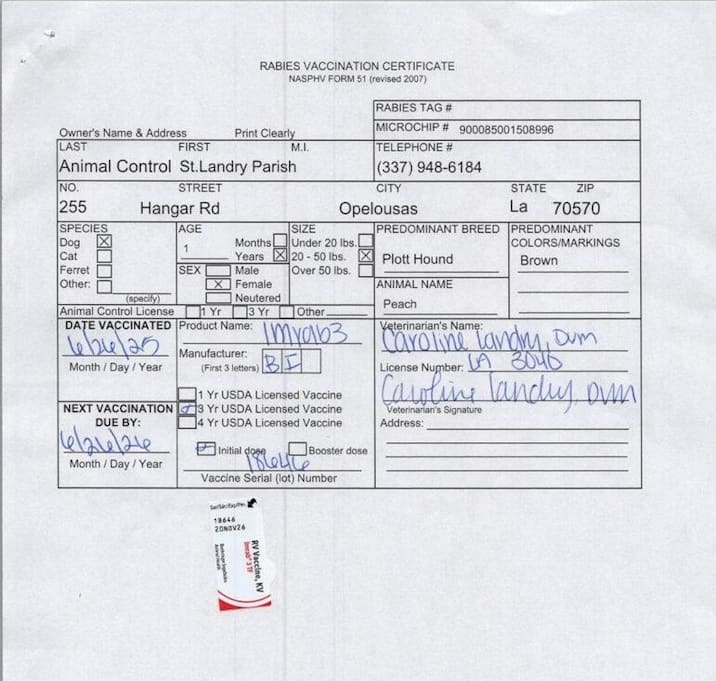 RABIES VACCINATION CERTIFICATE
NASPHV FORM 51 (revised 2007)
RABIES TAG #
MICROCHIP # 900085001508996
Owner's Name & Address Print Clearly
LAST FIRST M.I. TELEPHONE #
Animal Control St.Landry Parish (337) 948-6184
NO. STREET CITY STATE ZIP
255 Hangar Rd Opelousas La 70570
SPECIES AGE SIZE PREDOMINANT BREED PREDOMINANT
COLORS/MARKINGS
Dog Months Under 20 lbs.
Cat 1 Years 20 - 50 lbs. Plott Hound Brown
Ferret SEX Male Over 50 lbs.
Other: Female ANIMAL NAME
(specify) Neutered Peach
Animal Control License 1 Yr 3 Yr Other
DATE VACCINATED Product Name: Imrab3 Veterinarian's Name:
6/26/25 Caroline Landry, DVM
Month / Day / Year Manufacturer: BI License Number: LA 3040
(First 3 letters)
Caroline Landry, DVM
1 Yr USDA Licensed Vaccine
NEXT VACCINATION 3 Yr USDA Licensed Vaccine Veterinarian's Signature
DUE BY: 4 Yr USDA Licensed Vaccine Address:
6/26/26
Initial dose Booster dose
Month / Day / Year 18646
Vaccine Serial (lot) Number
18646
20NOV26
RV Vaccine, KV
Imrab® 3 TF